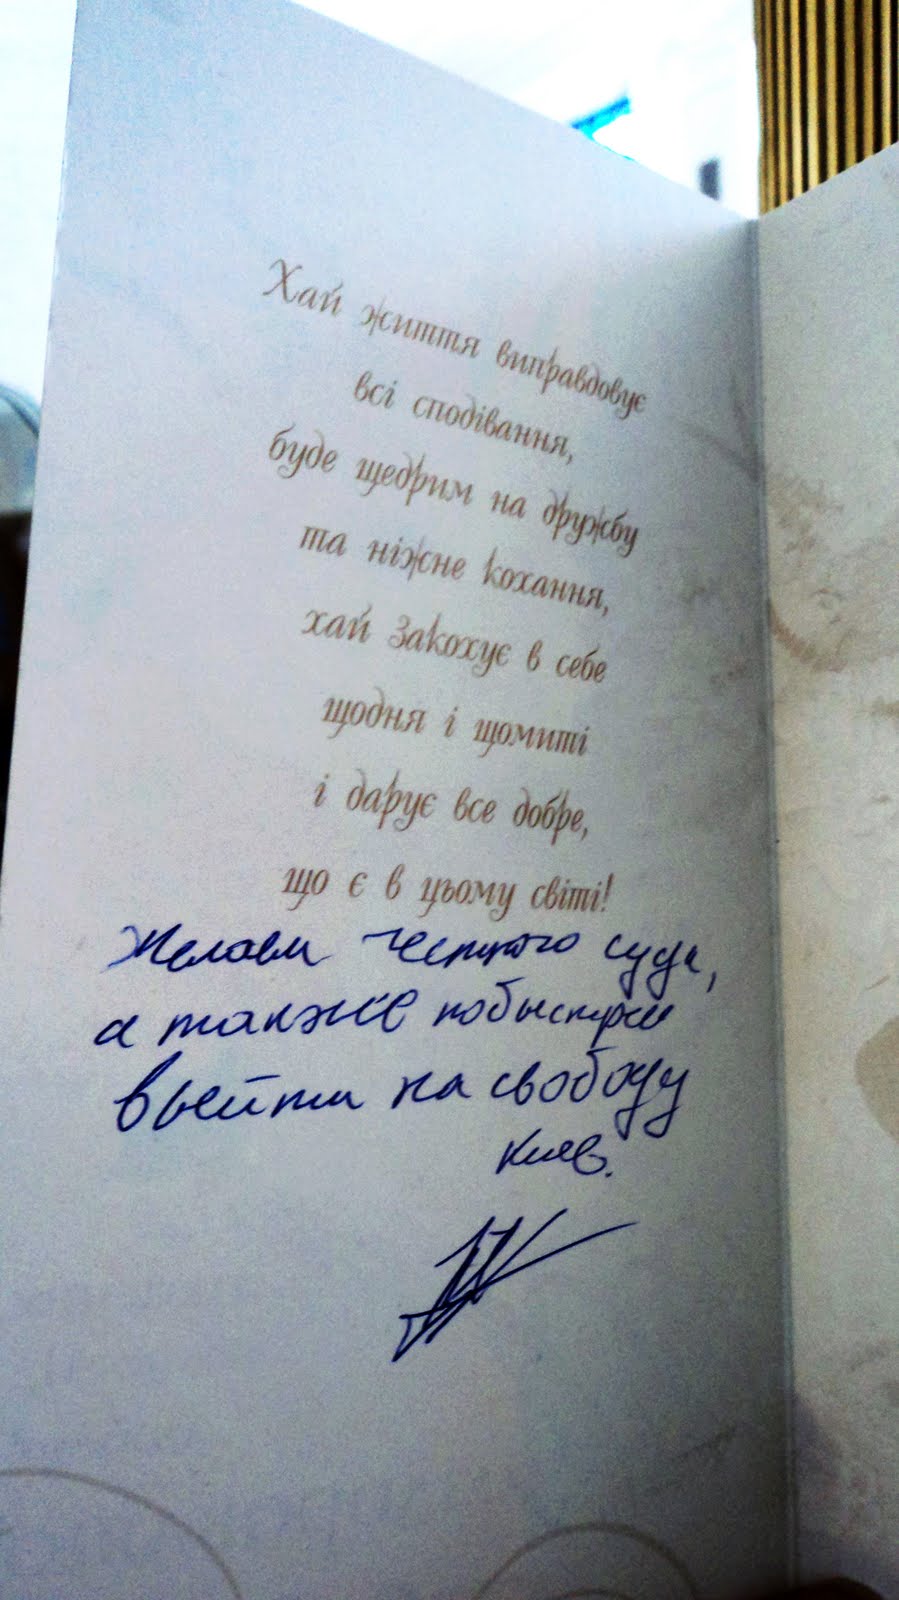 Хай життя виправдовує
всі сподівання,
буде щедрим на дружбу
та ніжне кохання,
хай закохує в себе
щодня і щомиті
і дарує все добре,
що є в цьому світі!
Желаем честного суда,
а также побыстрее
выйти на свободу
Киев.